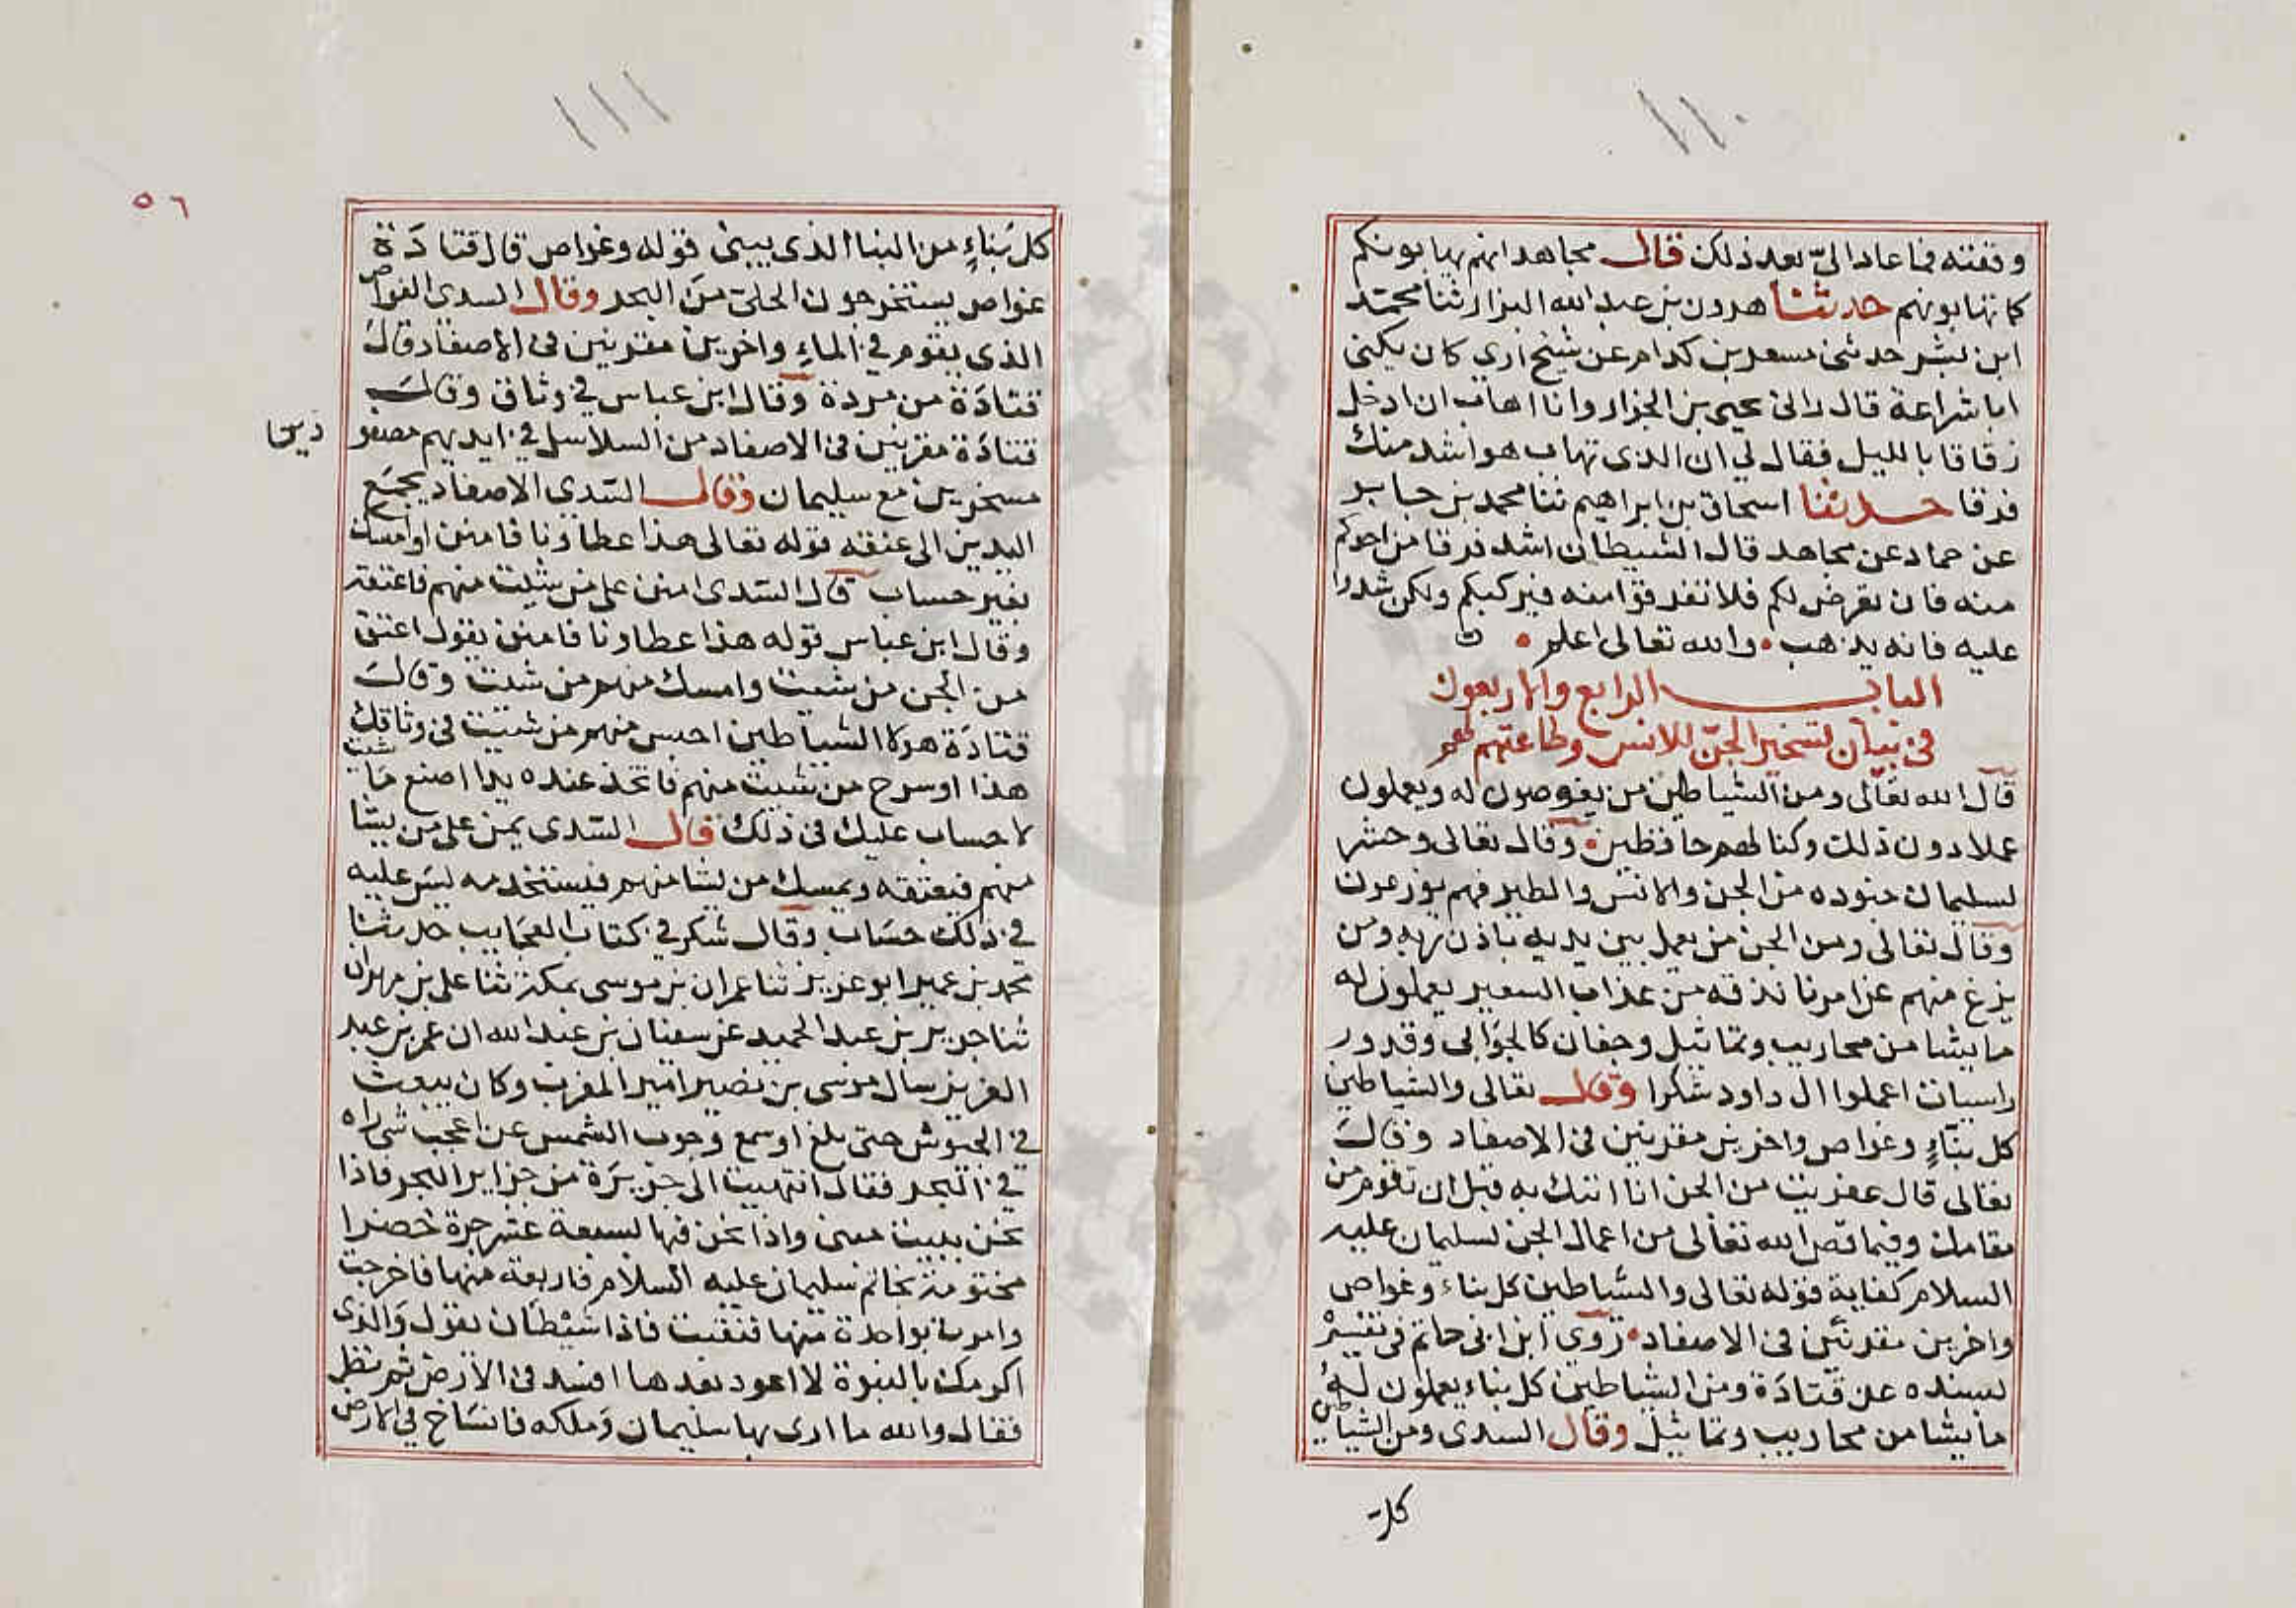 ١١٠
وقفته فما عاد الىّ بعد ذلك قال مجاهد انهم يهابونكم
كما تهابونهم حدثنا هرون بن عبد الله البزار ثنا محمد
ابن بشر حدثنى مسعر بن كدام عن شيخ ارى كان يكنى
ابا شراعة قال رانى يحيى بن الجزار وانا اهاب ان ادخل
زقاقا بالليل فقال لي ان الذى تهاب هو اشد منك
فرقا حدثنا اسحاق بن ابراهيم ثنا محمد بن جابر
عن حماد عن مجاهد قال الشيطان اشد فرقا من احدكم
منه فان تعرض لكم فلا تفرقوا منه فيركبكم ولكن شدوا
عليه فانه يذهب • والله تعالى اعلم •
الباب الرابع والاربعون
فى بيان تسخير الجن للانس وطاعتهم لهم
قال الله تعالى ومن الشياطين من يغوصون له ويعملون
عملا دون ذلك وكنا لهم حافظين • وقال تعالى وحشر
لسليمان جنوده من الجن والانس والطير فهم يوزعون
وقال تعالى ومن الجن من يعمل بين يديه باذن ربه ومن
يزغ منهم عن امرنا نذقه من عذاب السعير يعملون له
ما يشا من محاريب وتماثيل وجفان كالجوابى وقدور
راسيات اعملوا ال داود شكرا وقال تعالى والشياطين
كل بنّاءٍ وغواص واخرين مقرنين فى الاصفاد وقال
تعالى قال عفريت من الجن انا اتيك به قبل ان تقوم من
مقامك وفيما قص الله تعالى من اعمال الجن لسليمان عليه
السلام كفاية قوله تعالى والشياطين كل بناء وغواص
واخرين مقرنين فى الاصفاد • روى ابن ابى حاتم فى تفسيره
بسنده عن قتادة ومن الشياطين كل بناء يعملون له
ما يشا من محاريب وتماثيل وقال السدى ومن الشياطين
كل
١١١
٥٦
كل بناءٍ من البنا الذى يبنى قوله وغواص قال قتادة
غواص يستخرجون الحلى من البحر وقال السدى الغواص
الذى يقوم في الماء واخرين مقرنين فى الاصفاد قال
قتادة من مردة وقال ابن عباس في وثاق وقال
قتادة مقرنين فى الاصفاد من السلاسل في ايديهم مصفو
دين
مسخرين مع سليمان وقال السدى الاصفاد يجمع
اليدين الى عنقه قوله تعالى هذا عطاونا فامنن او امسك
بغير حساب قال السدى امنن على من شيت منهم فاعتقه
وقال ابن عباس قوله هذا عطاونا فامنن يقول اعتق
من الجن من شيت وامسك منهم من شيت وقال
قتادة هولا الشياطين احبس منهم من شيت فى وثاقك
هذا او سرح من شيت منهم فاتخذ عنده يدا اصنع ما شيت
لا حساب عليك فى ذلك قال السدى يمن على من يشا
منهم فيعتقه ويمسك من يشا منهم فيستخدمه ليس عليه
في ذلك حساب وقال شكر في كتاب العجايب حدثنا
محمد بن عمير ابو عزيز ثنا عمران بن موسى بمكة ثنا على بن مهران
ثنا جرير بن عبد الحميد عن سفيان بن عبد الله ان عمر بن عبد
العزيز سال موسى بن نصير امير المغرب وكان يبعث
في الجيوش حتى بلغ او سمع وجوب الشمس عن اعجب شى راه
في البحر فقال انتهيت الى جزيرة من جزاير البحر فاذا
نحن ببيت مبنى واذا نحن فيها بسبعة عشر جرة خضرا
مختومة بخاتم سليمان عليه السلام فاربعة منها فاخرجت
وامرت بواحدة منها فنقبت فاذا شيطان يقول والذى
اكرمك بالنبوة لا اعود بعدها افسد فى الارض ثم نظر
فقال والله ما ارى بها سليمان وملكه فانساخ في الارض